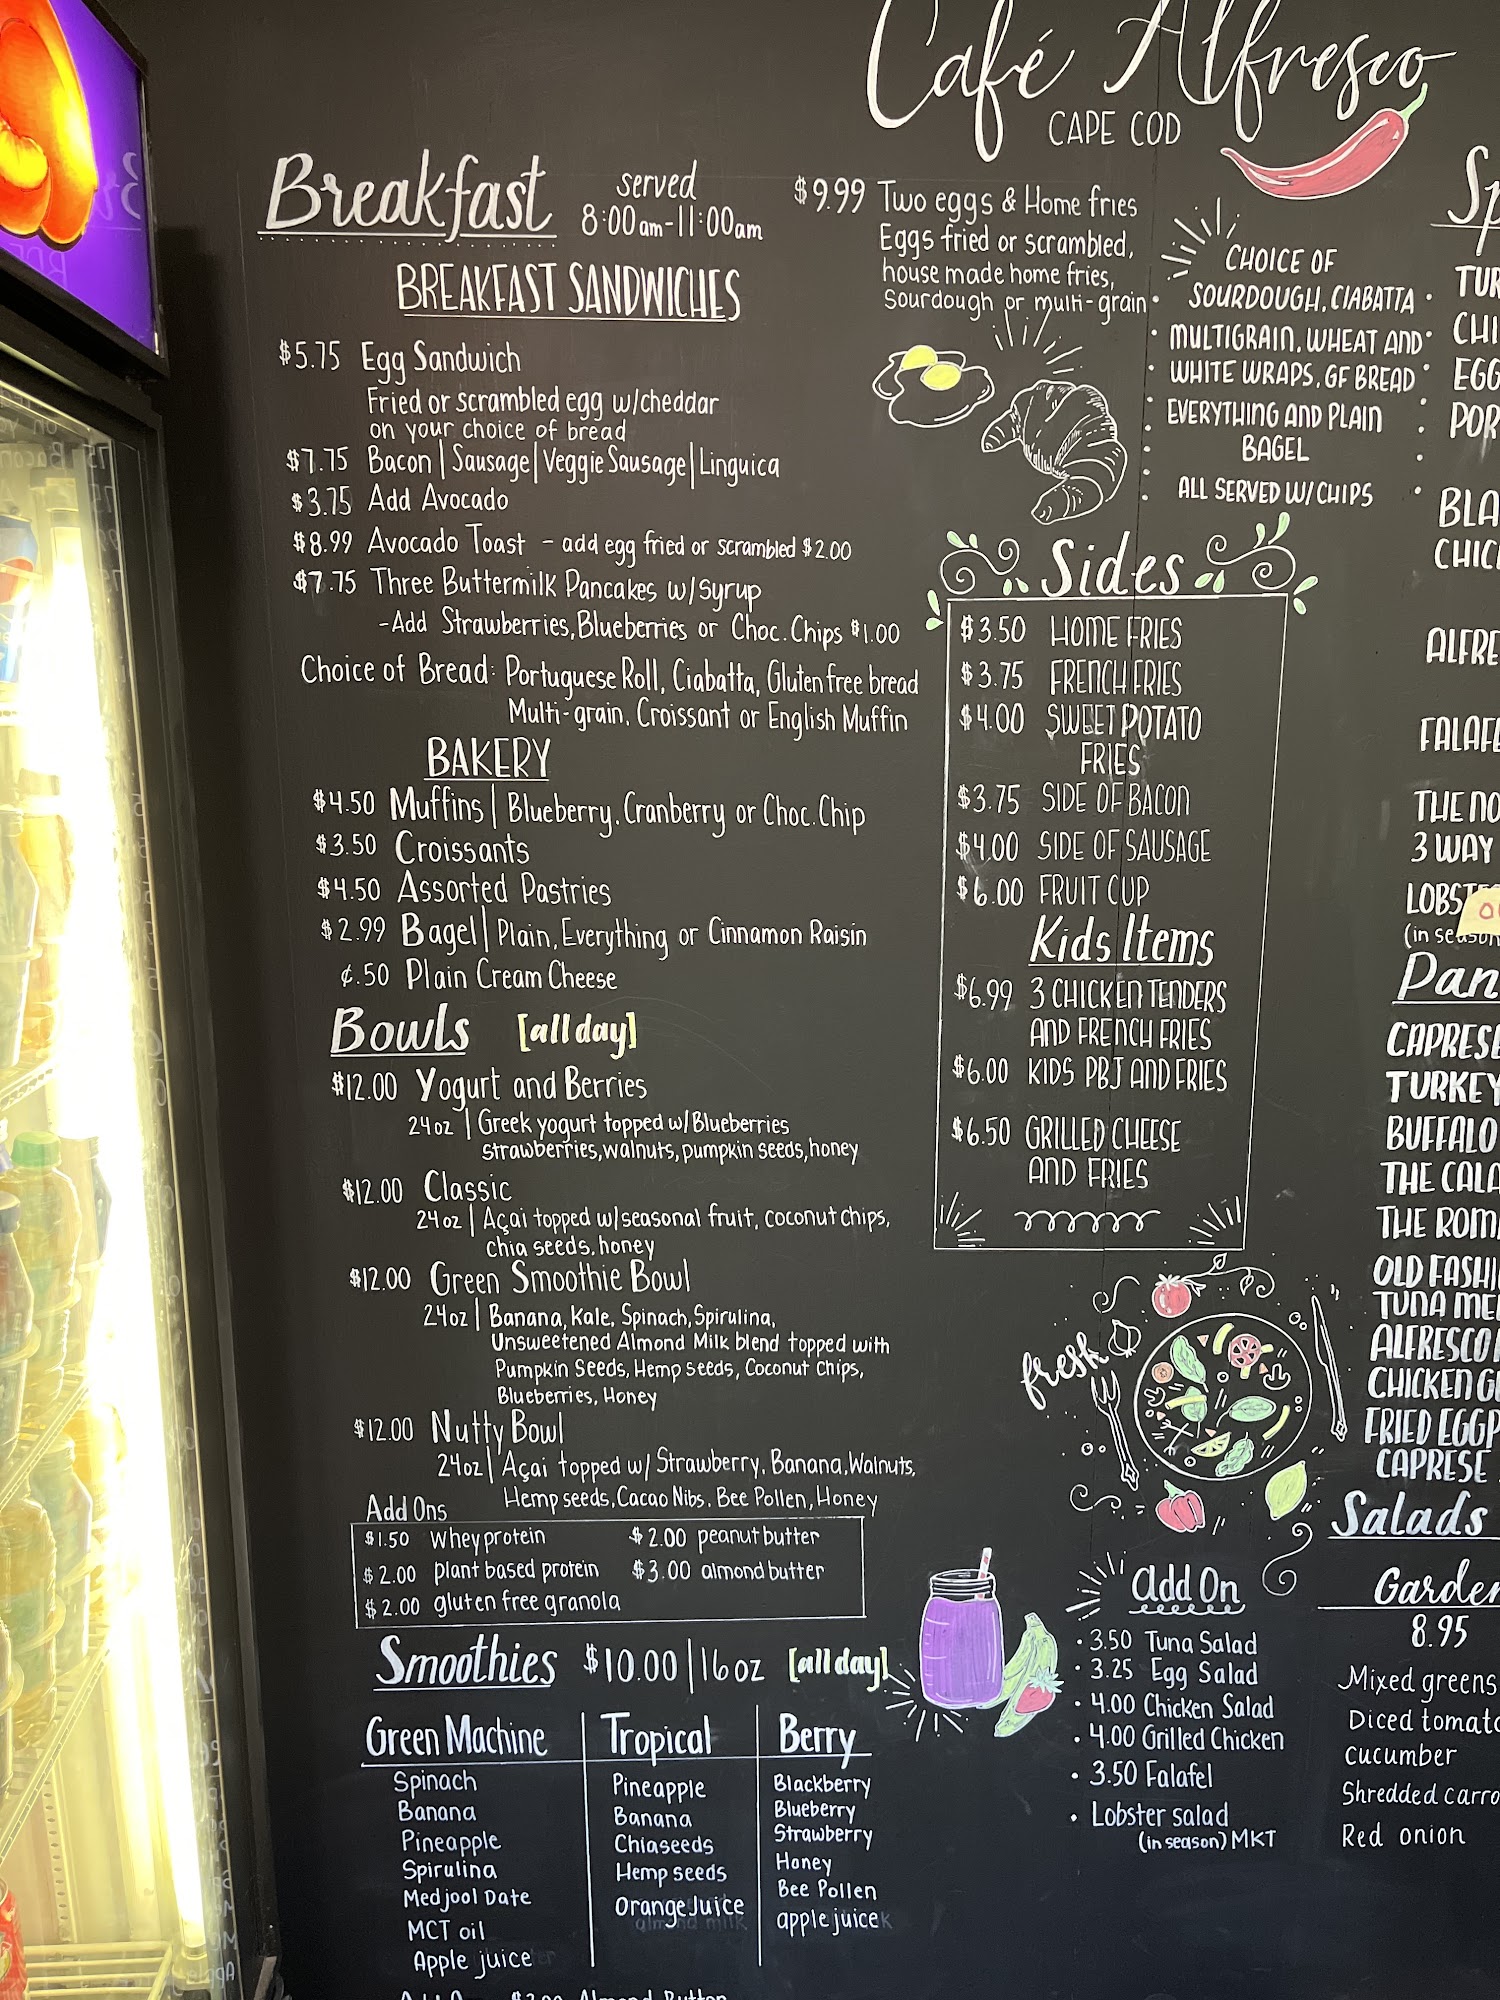 Café Alfresco
CAPE COD
Breakfast
served
8:00am-11:00am
BREAKFAST SANDWICHES
$5.75 Egg Sandwich
Fried or scrambled egg w/cheddar
on your choice of bread
$7.75 Bacon | Sausage | Veggie Sausage | Linguica
$3.75 Add Avocado
$8.99 Avocado Toast - add egg fried or scrambled $2.00
$7.75 Three Buttermilk Pancakes w/syrup
-Add Strawberries, Blueberries or Choc. Chips $1.00
Choice of Bread: Portuguese Roll, Ciabatta, Gluten free bread
Multi-grain, Croissant or English Muffin
BAKERY
$4.50 Muffins | Blueberry, Cranberry or Choc. Chip
$3.50 Croissants
$4.50 Assorted Pastries
$2.99 Bagel | Plain, Everything or Cinnamon Raisin
¢.50 Plain Cream Cheese
Bowls [all day]
$12.00 Yogurt and Berries
24oz | Greek yogurt topped w/Blueberries
strawberries, walnuts, pumpkin seeds, honey
$12.00 Classic
24oz | Açai topped w/seasonal fruit, coconut chips,
chia seeds, honey
$12.00 Green Smoothie Bowl
24oz | Banana, Kale, Spinach, Spirulina,
Unsweetened Almond Milk blend topped with
Pumpkin Seeds, Hemp seeds, Coconut Chips,
Blueberries, Honey
$12.00 Nutty Bowl
24oz | Açai topped w/ Strawberry, Banana, Walnuts,
Hemp seeds, Cacao Nibs, Bee Pollen, Honey
Add Ons
$1.50 Whey protein $2.00 peanut butter
$2.00 plant based protein $3.00 almond butter
$2.00 gluten free granola
Smoothies $10.00 | 16oz [all day]
Green Machine
Spinach
Banana
Pineapple
Spirulina
Medjool Date
MCT oil
Apple juice
Tropical
Pineapple
Banana
Chiaseeds
Hemp seeds
Orange Juice
almond milk
Berry
Blackberry
Blueberry
Strawberry
Honey
Bee Pollen
apple juice
$9.99 Two eggs & Home fries
Eggs fried or scrambled,
house made home fries,
Sourdough or multi-grain
CHOICE OF
SOURDOUGH, CIABATTA
MULTIGRAIN, WHEAT AND
WHITE WRAPS, GF BREAD
EVERYTHING AND PLAIN
BAGEL
ALL SERVED W/ CHIPS
Sides
$3.50 HOME FRIES
$3.75 FRENCH FRIES
$4.00 SWEET POTATO
FRIES
$3.75 SIDE OF BACON
$4.00 SIDE OF SAUSAGE
$6.00 FRUIT CUP
Kids Items
$6.99 3 CHICKEN TENDERS
AND FRENCH FRIES
$6.00 KIDS PBJ AND FRIES
$6.50 GRILLED CHEESE
AND FRIES
fresh
Add On
• 3.50 Tuna Salad
• 3.25 Egg Salad
• 4.00 Chicken Salad
• 4.00 Grilled Chicken
• 3.50 Falafel
• Lobster salad
(in season) MKT
Sp
TUR
CHI
EGG
POR
BLA
CHIC
ALFRE
FALAFE
THE NO
3 WAY
LOBST
(in season
Pan
CAPRESE
TURKEY
BUFFALO
THE CALA
THE ROM
OLD FASHI
TUNA ME
ALFRESCO
CHICKEN G
FRIED EGGP
CAPRESE
Salads
Garden
8.95
Mixed greens
Diced tomato
cucumber
Shredded carro
Red onion